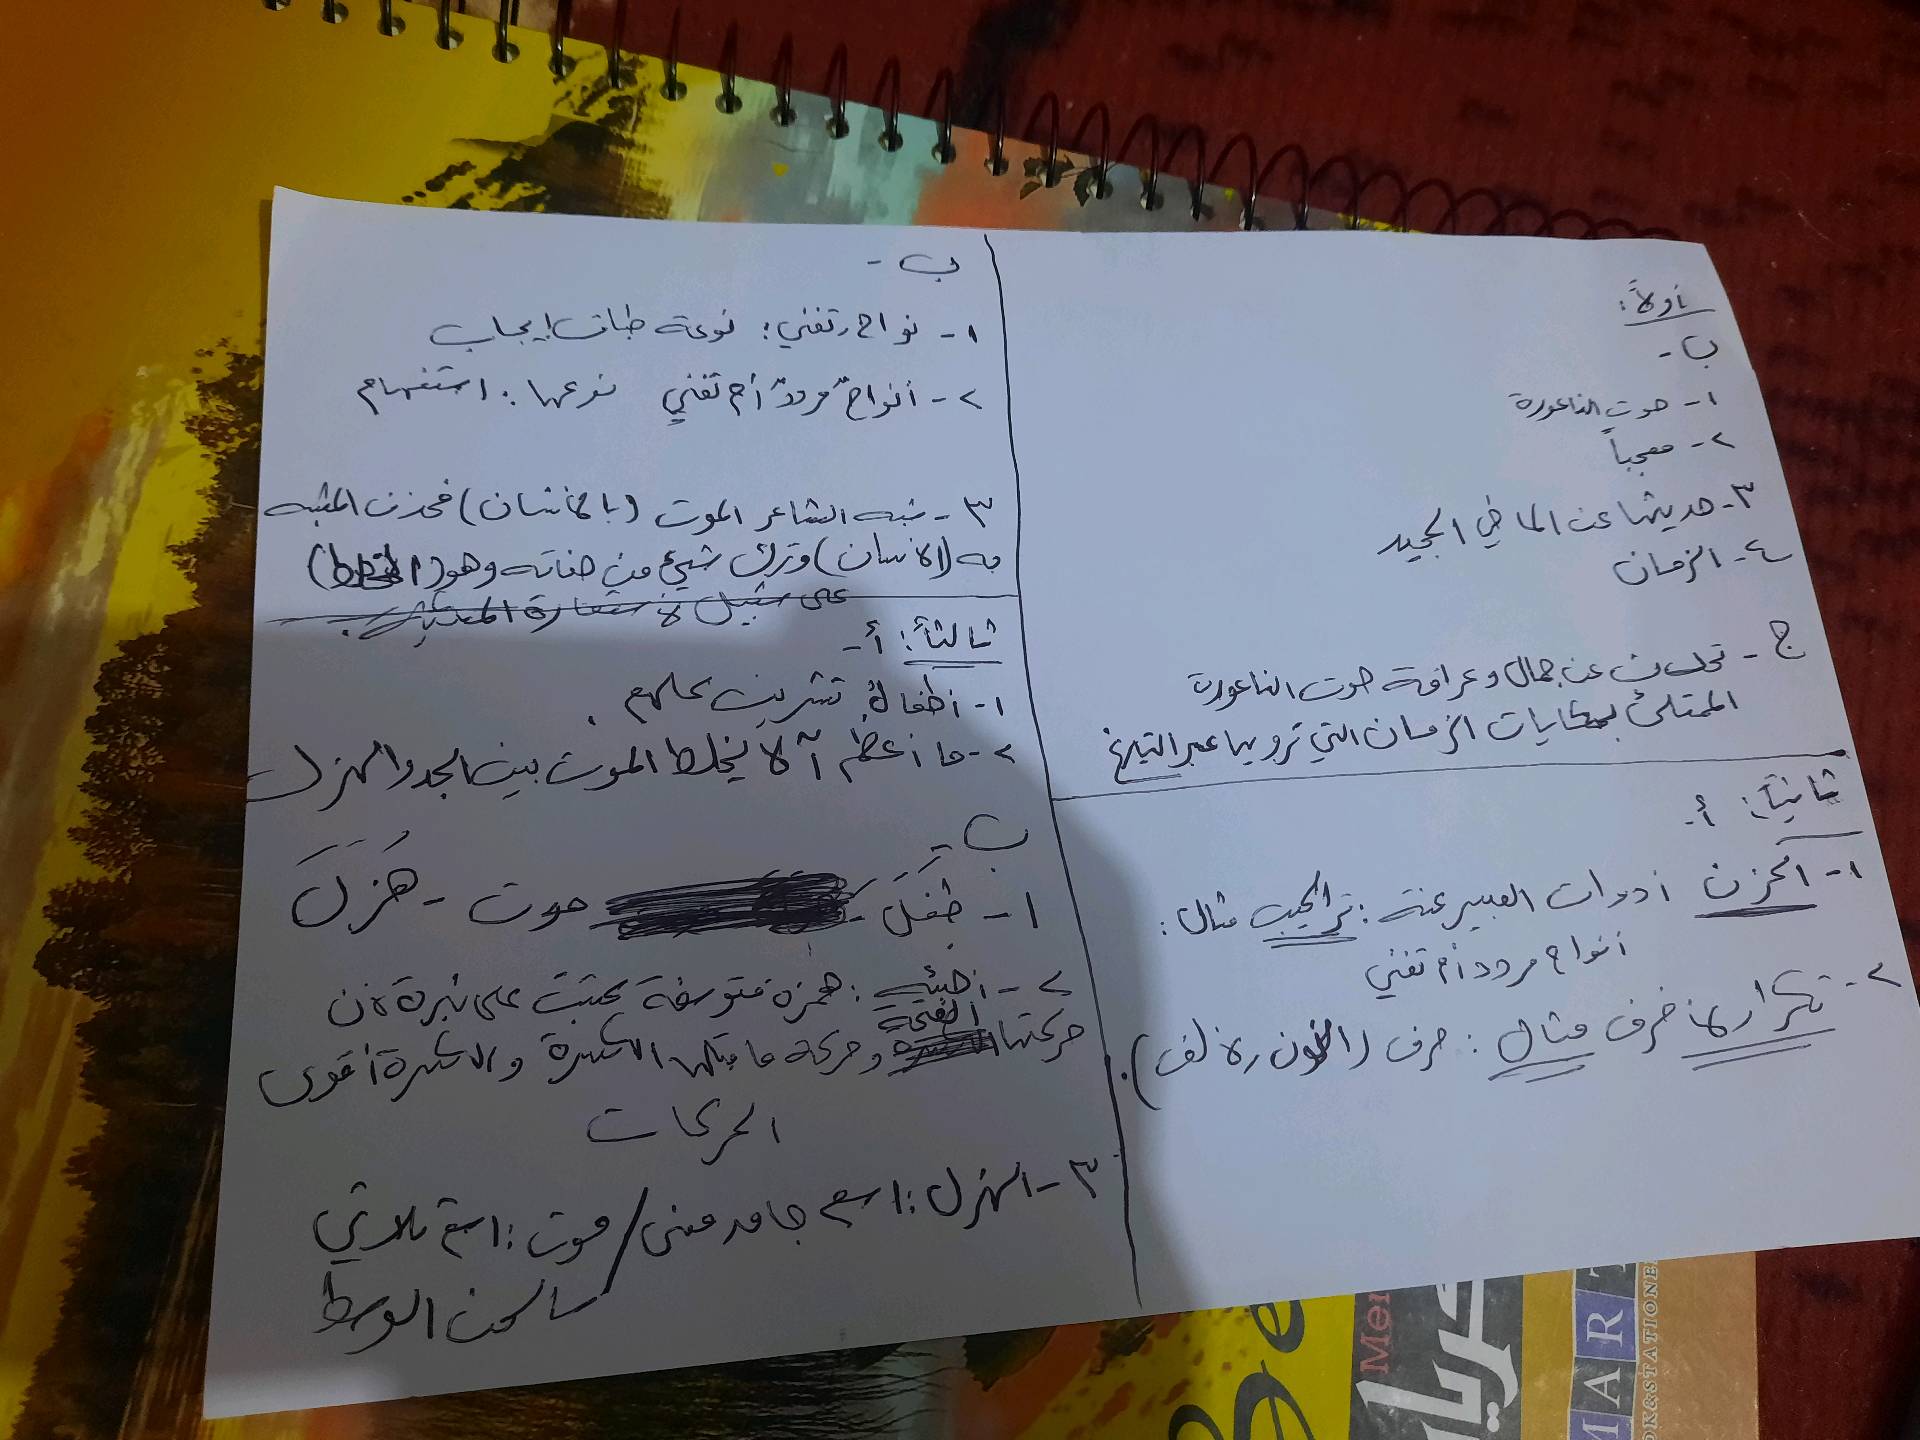 أولاً:
ب -
١- صوت الناعورة
٢- معجباً
٣- حديثها عن الماضي المجيد
٤- الزمان
ج - تحدث عن جمال وعراقة صوت الناعورة
الممتلئ بحكايات الزمان التي ترويها عبر التاريخ
ثانياً: أ-
١- الحزن أدوات التعبير عنه: تراكيب مثال:
أنواح مردد أم تغني
٢- تكرارها حرف مثال: حرف (النون، الألف).
ب -
١- نواح، تغني: نوعه طباق إيجاب
٢- أنواحٌ مرددٌ أم تغني نوعها: استفهام
٣- شبه الشاعر الموت (بالإنسان) فحذف المشبه
به (الإنسان) وترك شيئ من صفاته وهو
على سبيل الاستعارة المكنية.
ثالثاً: أ-
١- أطفالُ تشرين بحلمهم.
٢- ما أعظم ألا يخلط الموت بين الجد والهزل
ب -
١- طَفَلَ - صوت - هَزَلَ
٢- همزة متوسطة كتبت على نبرة لأن
حركتها الفتحة وحركة ما قبلها الكسرة والكسرة أقوى
الحركات
٣- الهزل: اسم جامد معنى / موت: اسم ثلاثي
ساكن الوسط
Mer
MART
OK&STATIONE